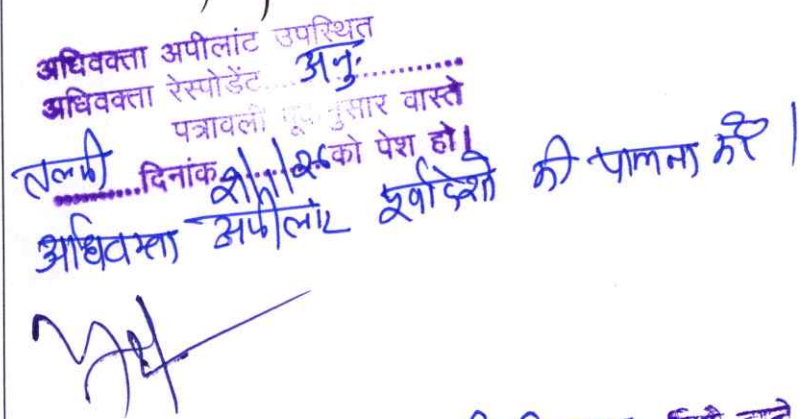 अधिवक्ता अपीलांट उपस्थित
अधिवक्ता रेस्पोडेंट....अनु...........
पत्रावली पूर्वानुसार वास्ते
तलबी.........दिनांक........को पेश हो।
अधिवक्ता अपीलांट पूर्वादेशो की पालना करे।